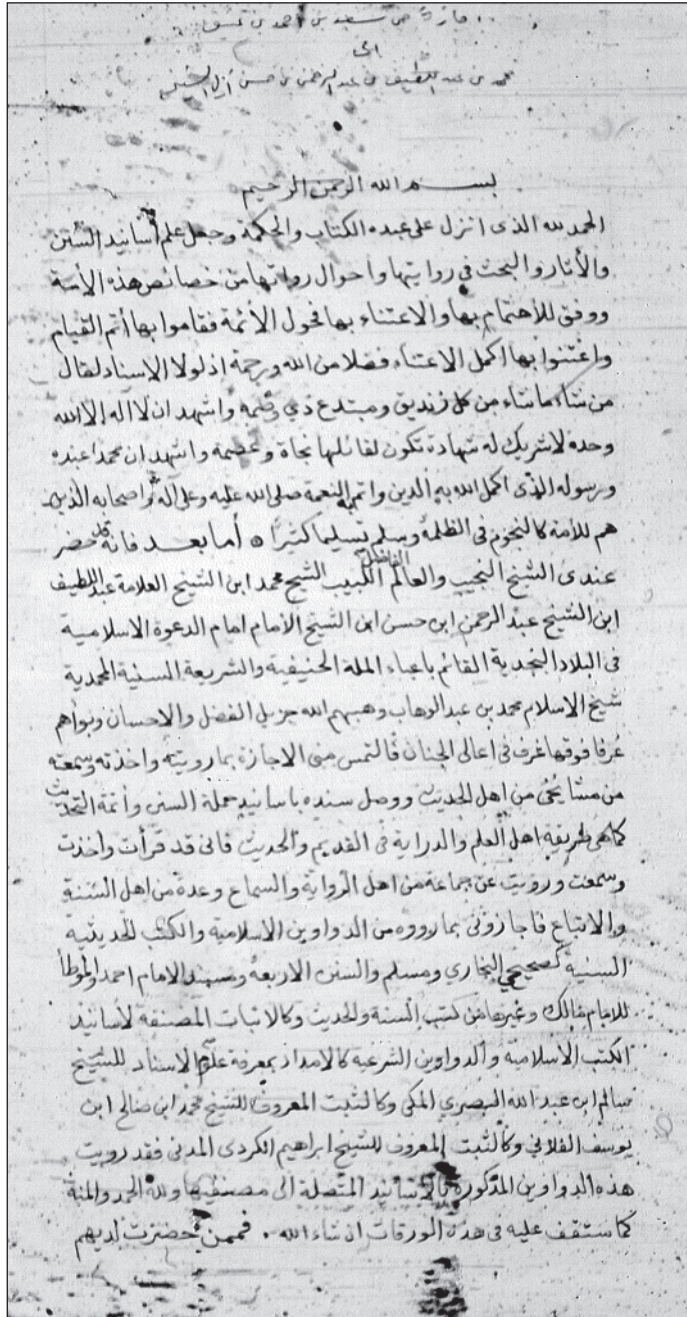 اجازة من سعد بن احمد بن عتيق
الى
محمد بن عبد اللطيف بن عبد الرحمن بن حسن آل الشيخ
بسم الله الرحمن الرحيم
الحمد لله الذى انزل على عبده الكتاب والحكمة وجعل علم أسانيد السنن
والأثار والبحث في روايتها واحوال رواتها من خصائص هذه الأمة
ووفق للأهتمام بها والاعتناء بها فحول الأئمة فقاموا بها أتم القيام
واعتنوا بها اكمل الاعتناء فضلا من الله ورحمة اذ لولا الاسناد لقال
من شاء ما شاء من كل زنديق ومبتدع ذي وصمة واشهد ان لا اله الا الله
وحده لا شريك له شهادة تكون لقائلها نجاة وعصمة واشهد ان محمدا عبده
ورسوله الذى اكمل الله به الدين واتم به النعمة صلى الله عليه وعلى آله واصحابه الذين
هم للأمة كالنجوم فى الظلمة وسلم تسليما كثيرا ۞ أما بعد فانه قد حضر
عندى الشيخ النجيب والعالم الفاضل اللبيب الشيخ محمد ابن الشيخ العلامة عبد اللطيف
ابن الشيخ عبد الرحمن ابن حسن ابن الشيخ الأمام امام الدعوة الاسلامية
فى البلاد النجدية القائم باعباء الملة الحنيفية والشريعة السنية المحمدية
شيخ الاسلام محمد بن عبد الوهاب وهبهم الله جزيل الفضل والاحسان وبواهم
غرفا فوقها غرف فى اعالى الجنان فالتمس منى الاجازة بما رويته واخذته وسمعته
من مشايخى من اهل الحديث ووصل سنده باسانيد حملة السنن وأئمة التحديث
كما هى طريقة اهل العلم والدراية فى القديم والحديث فانى قد قرأت وأخذت
وسمعت ورويت عن جماعة من اهل الرواية والسماع وعدة من اهل السنة
والاتباع فاجازونى بما رووه من الدواوين الاسلامية والكتب الحديثية
السنية كصحيحي البخاري ومسلم والسنن الاربعة ومسند الامام احمد والموطأ
للامام مالك وغيرها من كتب السنة والحديث وكالاثبات المصنفة لأسانيد
الكتب الاسلامية والدواوين الشرعية كالامداد بمعرفة علو الاسناد للشيخ
سالم ابن عبد الله البصري المكى وكالثبت المعروف للشيخ محمد ابن صالح ابن
يوسف الفلاني وكالثبت المعروف للشيخ ابراهيم الكردى المدنى فقد رويت
هذه الدواوين المذكورة بالأسانيد المتصلة الى مصنفيها ولله الحمد والمنة
كما ستقف عليه فى هذه الورقات ان شاء الله . فممن حضرت لديهم